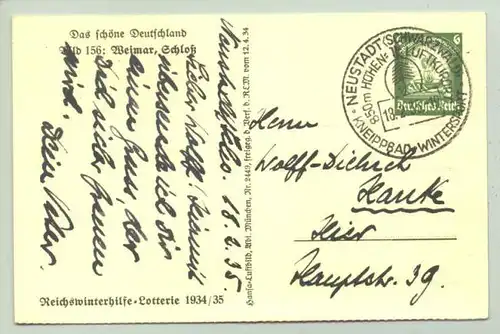 Das schöne Deutschland
Bild 156: Weimar, Schloß
Neustadt, den 18. 2. 35
Lieber Wolff! Hiermit
übersende ich Dir
einen Gruß, der
Dich sicher freuen
wird. Dein Vater.
Reichswinterhilfe-Lotterie 1934/35
Hansa-Luftbild, Abt. München, Nr. 2449, freigeg. d. Verf. d. RLM. vom 12.4.34
NEUSTADT (SCHWARZWALD)
850m HÖHEN-LUFTKURORT
18.2
KNEIPPBAD WINTERSPORT
6
Deutsches Reich
Herrn
Wolff-Dietrich
Hanke
Hier
Hauptstr. 39.